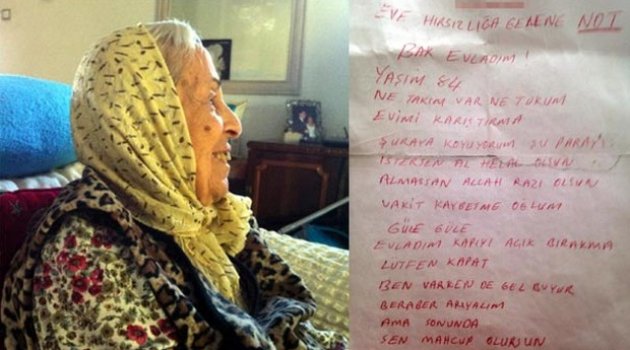 EVE HIRSIZLIĞA GELENE NOT
BAK EVLADIM!
YAŞIM 84
NE TAKIM VAR NE TOKUM
EVİMİ KARIŞTIRMA
ŞURAYA KOYUYORUM ŞU PARAYI
İSTERSEN AL HELAL OLSUN
ALMASSAN ALLAH RAZI OLSUN
VAKİT KAYBETME OĞLUM
GÜLE GÜLE
EVLADIM KAPIYI AÇIK BIRAKMA
LÜTFEN KAPAT
BEN VARKEN DE GEL BUYUR
BERABER ARIYALIM
AMA SONUNDA
SEN MAHCUP OLURSUN